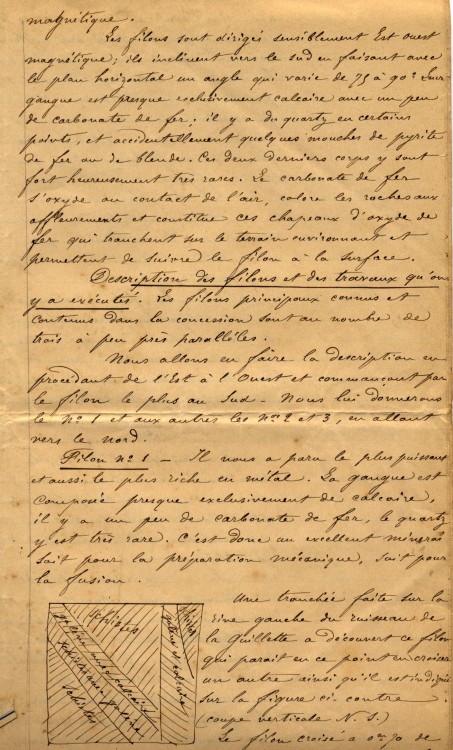 magnétique.
Les filons sont dirigés sensiblement Est ouest
magnétique; ils inclinent vers le sud en faisant avec
le plan horizontal un angle qui varie de 75 à 90° Leur
gangue est presque exclusivement calcaire avec un peu
de carbonate de fer; il y a du quartz en certains
points, et accidentellement quelques mouches de pyrite
de fer ou de blende. Ces deux derniers corps y sont
fort heureusement très rares. Le carbonate de fer
s'oxyde au contact de l'air, colore les roches aux
affleurements et constitue ces chapeaux d'oxyde de
fer qui tranchent sur le terrain environnant et
permettent de suivre le filon à la surface.
Description des filons et des travaux qu'on
y a exécutés. Les filons principaux connus et
contenus dans la concession sont au nombre de
trois à peu près parallèles.
Nous allons en faire la description en
procédant de l'Est à l'Ouest et commançant par
le filon le plus au Sud - Nous lui donnerons
le n° 1 et aux autres les nos 2 et 3, en allant
vers le nord.
Filon n° 1 - Il nous a paru le plus puissant
et aussi le plus riche en métal. La gangue est
composée presque exclusivement de calcaire,
il y a un peu de carbonate de fer, le quartz
y est très rare. C'est donc un excellent minerai
soit pour la préparation mécanique, soit pour
la fusion.
Une tranchée faite sur la
rive gauche du ruisseau de
la Quillette a découvert ce filon
qui parait en ce point en croiser
un autre ainsi qu'il est indiqué
sur la figure ci-contre.
(coupe verticale N. S.)
Le filon croisé a 0m,70 de
schistes
schistes